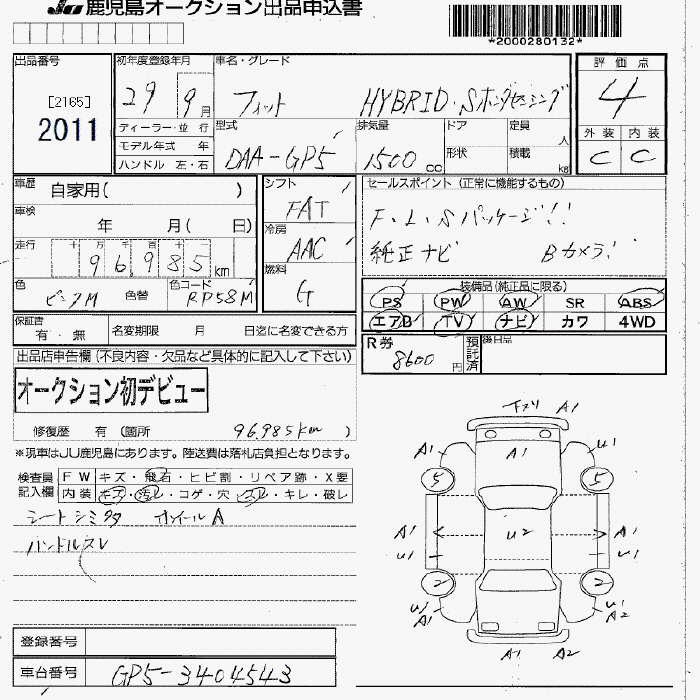 JU 鹿児島オークション出品申込書
*2000280132*
出品番号
[2165]
2011
初年度登録年月
29 9月
ディーラー・並行
モデル年式 年
ハンドル 左・右
車名・グレード
フィット HYBRID・Sホンダセンシング
型式
DAA-GP5
排気量
1500 cc
ドア
形状
定員 人
積載 kg
評価点
4
外装 内装
C C
車歴
自家用( )
車検
年 月( 日)
走行
十万千百十
96985km
色
ピンクM 色替
色コード
RP58M
シフト
FAT
冷房
AAC
燃料
G
セールスポイント (正常に機能するもの)
F.L.Sパッケージ!!
純正ナビ Bカメラ!
装備品(純正品に限る)
PS PW AW SR ABS
エアB TV ナビ カワ 4WD
保証書
有・無
名変期限 月 日迄に名変できる方
R券
8600円
預託済
後日品
出品店申告欄(不良内容・欠品など具体的に記入して下さい)
オークション初デビュー
修復歴 有 (箇所 96,985km )
※現車はJU鹿児島にあります。陸送費は落札店負担となります。
検査員記入欄
FW キズ・飛石・ヒビ割・リペア跡・X要
内装 キズ・汚レ・コゲ・穴・スレ・キレ・破レ
シートシミ ホイールA
ハンドルスレ
A1
A1 A1 U1
5 5
A1 U2 A1
U1 U1
2 2
U1 U1
A1 A2
A1 A2
登録番号
車台番号 GP5-3404543